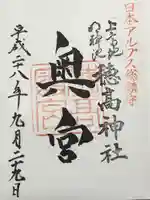 日本アルプス総鎮守
上高地
明神池
穂高神社
奥宮
平成二八年九月二九日